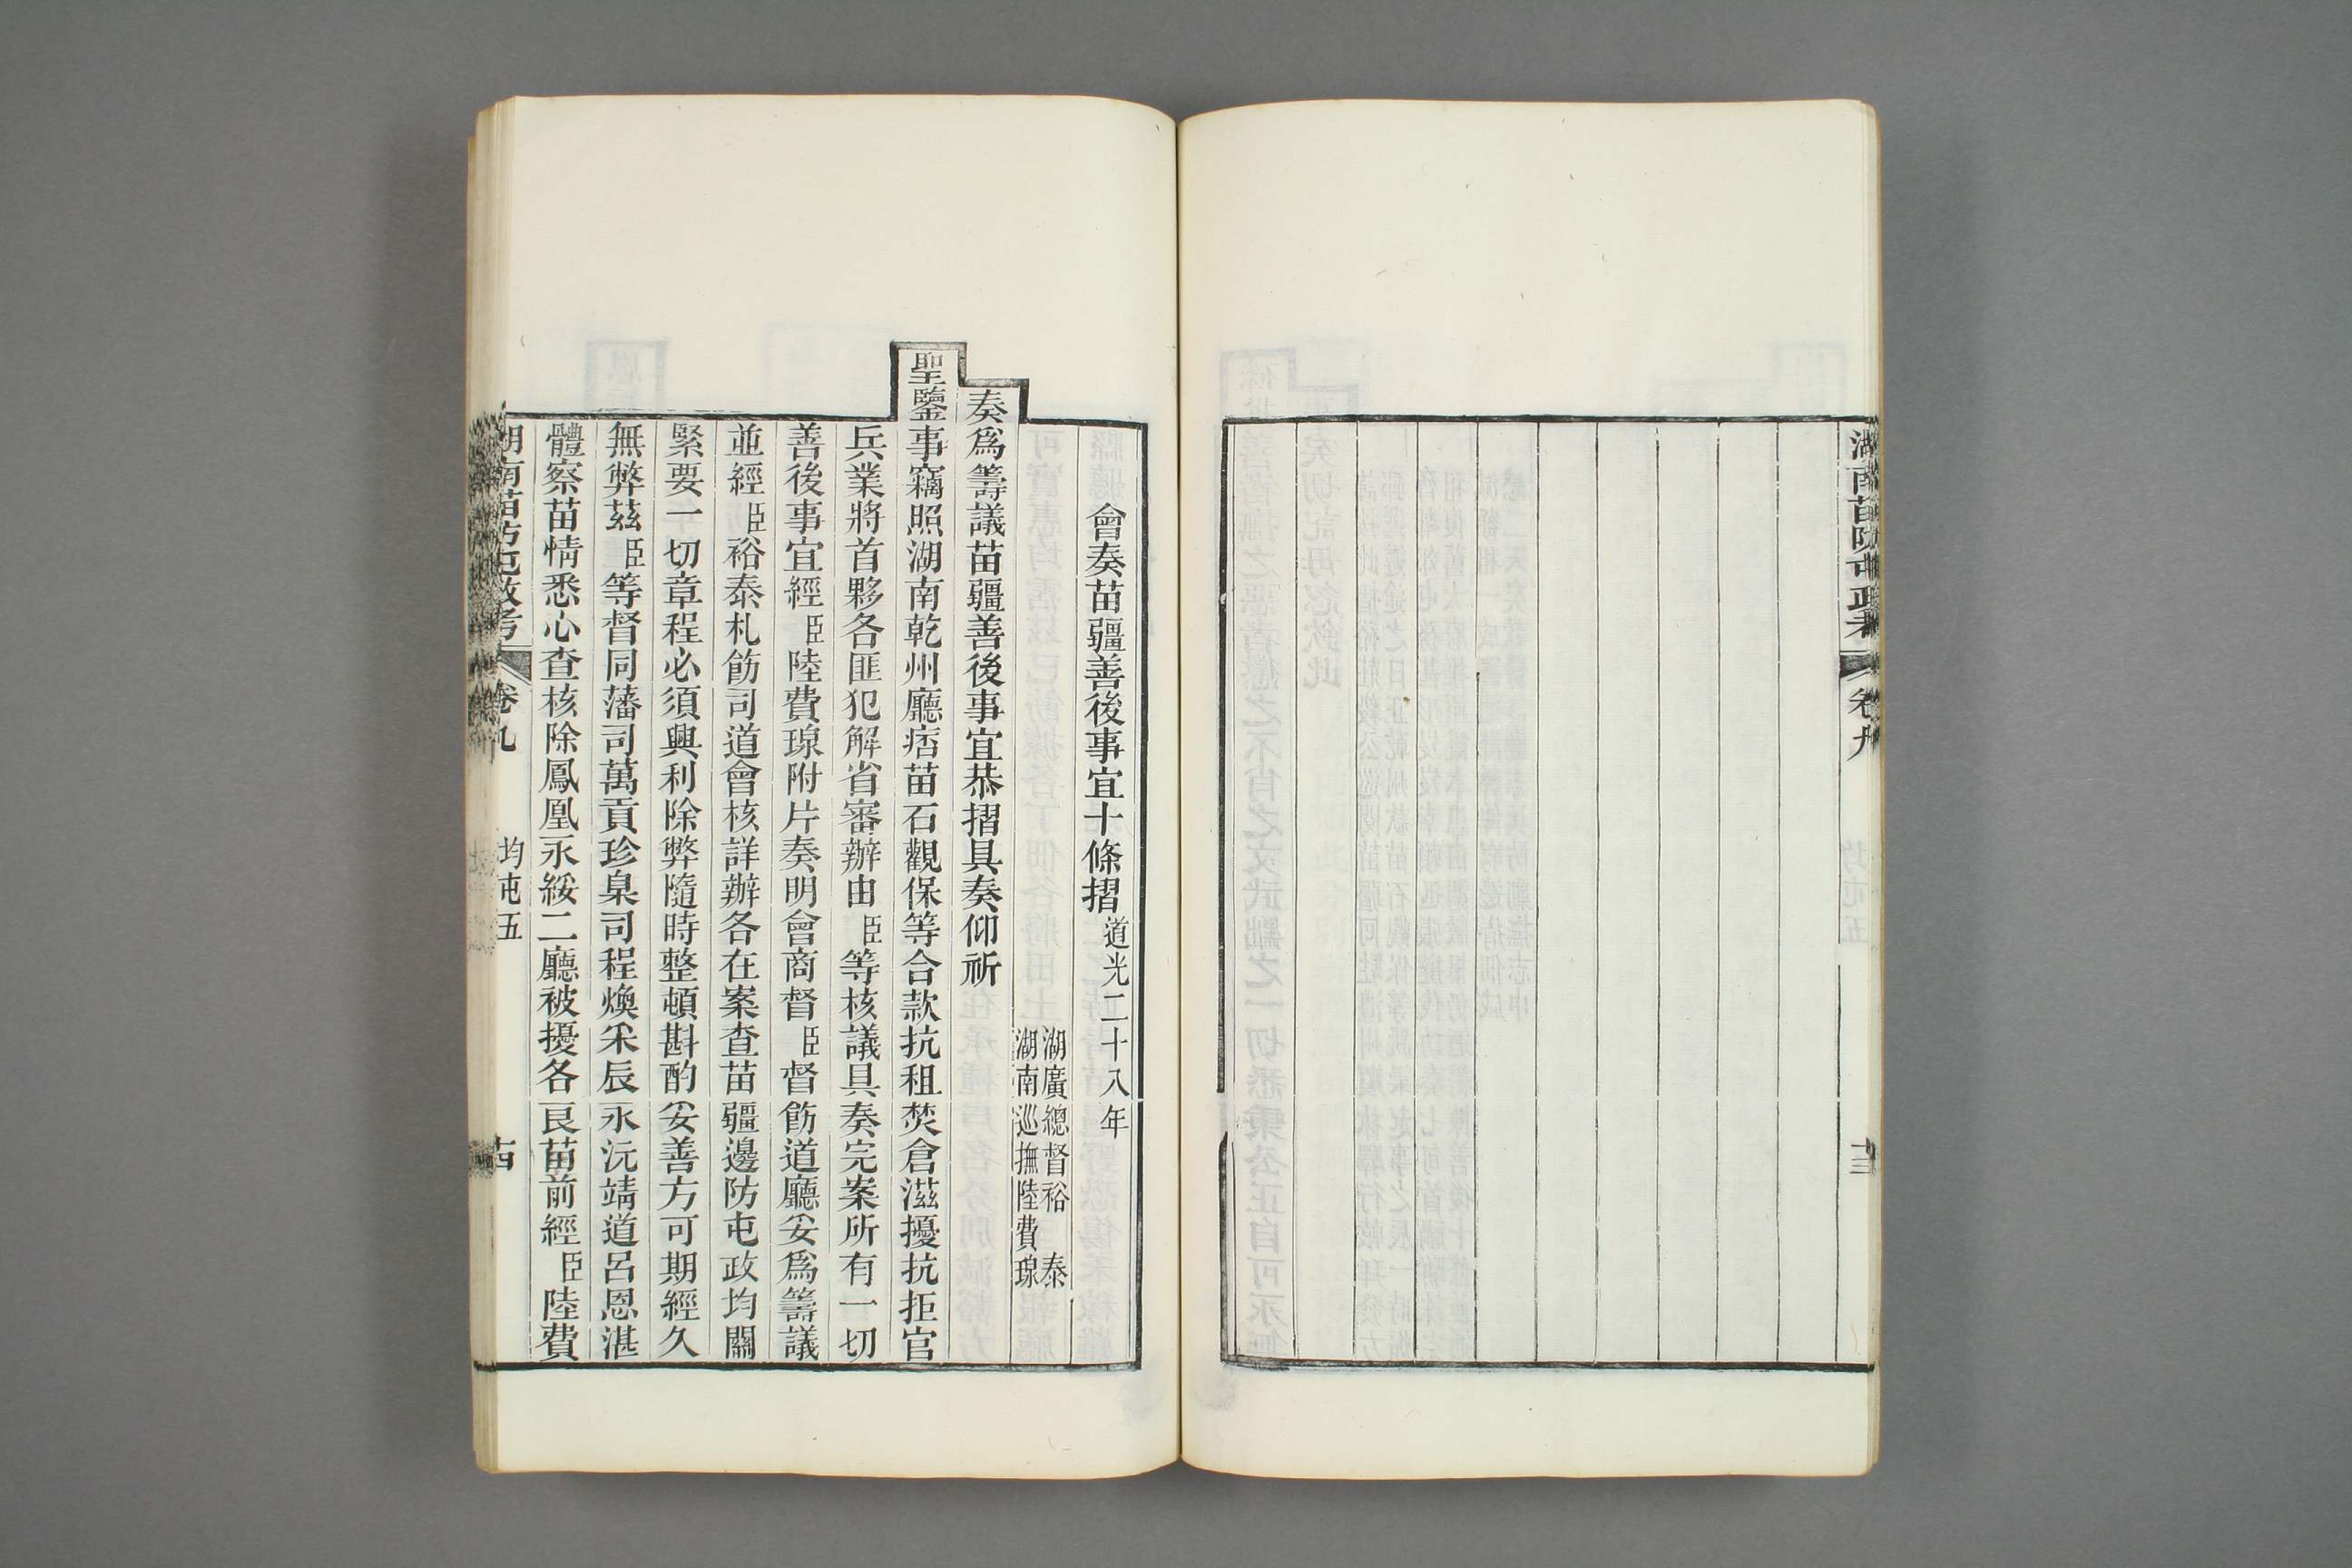 湖南苗防屯政考 卷九 十三
會奏苗疆善後事宜十條摺 道光二十八年
湖廣總督裕 泰
湖南巡撫陸費瑔
奏爲籌議苗疆善後事宜恭摺具奏仰祈
聖鑒事竊照湖南乾州廳痞苗石觀保等合款抗租焚倉滋擾抗拒官
兵業將首夥各匪犯解省審辦由臣等核議具奏完案所有一切
善後事宜經臣陸費瑔附片奏明會商督臣督飭道廳妥爲籌議
並經臣裕泰札飭司道會核詳辦各在案查苗疆邊防屯政均關
緊要一切章程必須興利除弊隨時整頓斟酌妥善方可期經久
無弊茲臣等督同藩司萬貢珍臬司程煥采辰永沅靖道呂恩湛
體察苗情悉心查核除鳳凰永綏二廳被擾各良苗前經臣陸費
湖南苗防屯政考 卷九 均屯五 十四